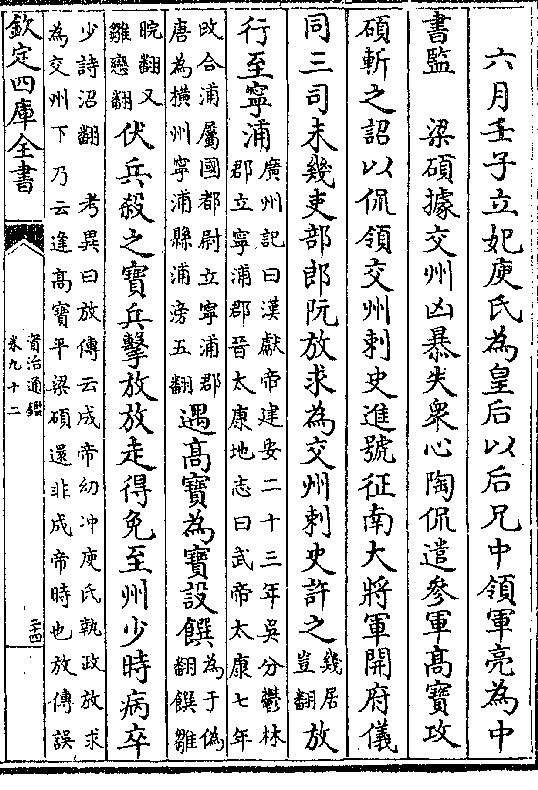 六月壬子立妃庾氏為皇后以后兄中領軍亮為中
書監　梁碩據交州凶暴失衆心陶侃遣參軍高寶攻
碩斬之詔以侃領交州刺史進號征南大將軍開府儀
同三司未幾吏部郎阮放求為交州刺史許之幾居豈翻放
行至寧浦廣州記曰漢獻帝建安二十三年吳分鬱林
郡立寧浦郡晉太康地志曰武帝太康七年
改合浦屬國都尉立寧浦郡
唐為橫州寧浦縣浦滂五翻遇高寶為寶設饌為于偽翻饌雛
睆翻又雛戀翻伏兵殺之寶兵擊放放走得免至州少時病卒
少詩沼翻　考異曰放傳云成帝幼冲庾氏執政放求
為交州下乃云逢高寶平梁碩還非成帝時也放傳誤
欽定四庫全書
資治通鑑
卷九十二
二十四